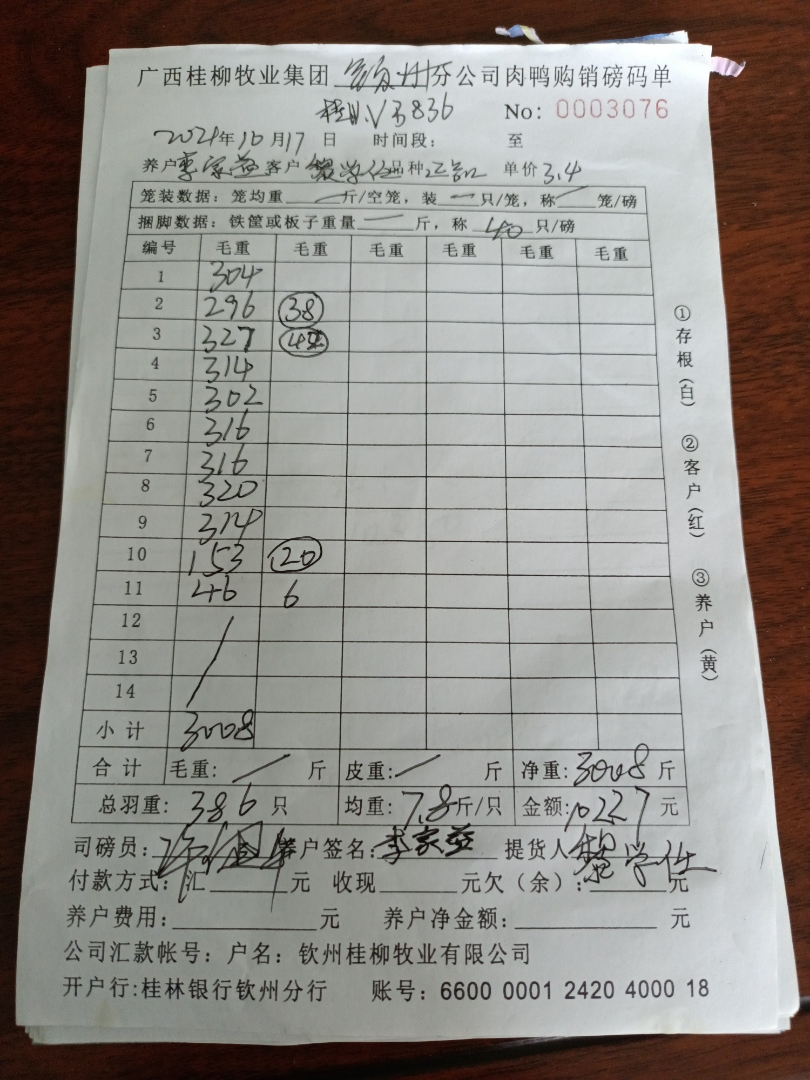 广西桂柳牧业集团 钦州分公司肉鸭购销磅码单
No: 0003076
2021年10月17日 时间段: 至
养户李家益客户 黎学仕品种 单价3.4
笼装数据: 笼均重 — 斤/空笼, 装 — 只/笼, 称 — 笼/磅
捆脚数据: 铁筐或板子重量 — 斤, 称 40 只/磅
编号 毛重 毛重 毛重 毛重 毛重 毛重
1 304
2 296 38
3 327 42
4 314
5 302
6 316
7 316
8 320
9 314
10 153 20
11 46 6
12
13
14
小计 3008
合计 毛重: — 斤 皮重: — 斤 净重: 3008 斤
总羽重: 386 只 均重: 7.8斤/只 金额: 10227 元
司磅员: 养户签名: 李家益 提货人 黎学仕
付款方式: 汇 元 收现 元欠(余): 元
养户费用: 元 养户净金额: 元
公司汇款帐号: 户名: 钦州桂柳牧业有限公司
开户行:桂林银行钦州分行 账号: 6600 0001 2420 4000 18
①存根(白) ②客户(红) ③养户(黄)